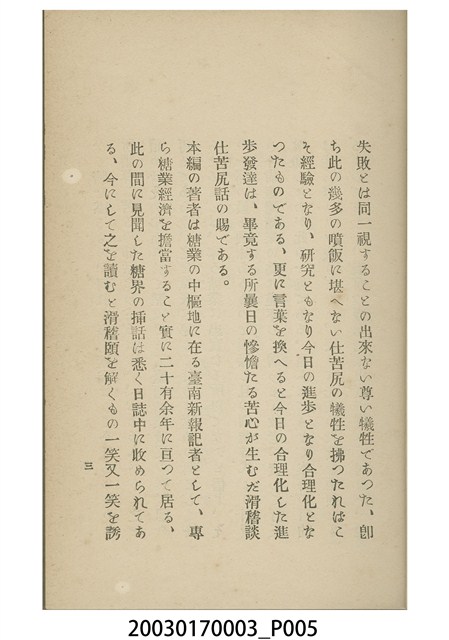 失敗とは同一視することの出來ない尊い犧牲であつた、卽
ち此の幾多の噴飯に堪へない仕苦尻の犧牲を拂つたればこ
そ經驗となり、硏究ともなり今日の進步となり合理化とな
つたものである、更に言葉を換へると今日の合理化した進
步發達は、畢竟する所曩日の慘憺たる苦心が生むだ滑稽談
仕苦尻話の賜である。
本編の著者は糖業の中樞地に在る臺南新報記者として、專
ら糖業經濟を擔當すること實に二十有余年に亘つて居る、
此の間に見聞した糖界の揷話は悉く日誌中に收められてあ
る、今にして之を讀むと滑稽頤を解くもの一笑又一笑を誘
三
20030170003_P005